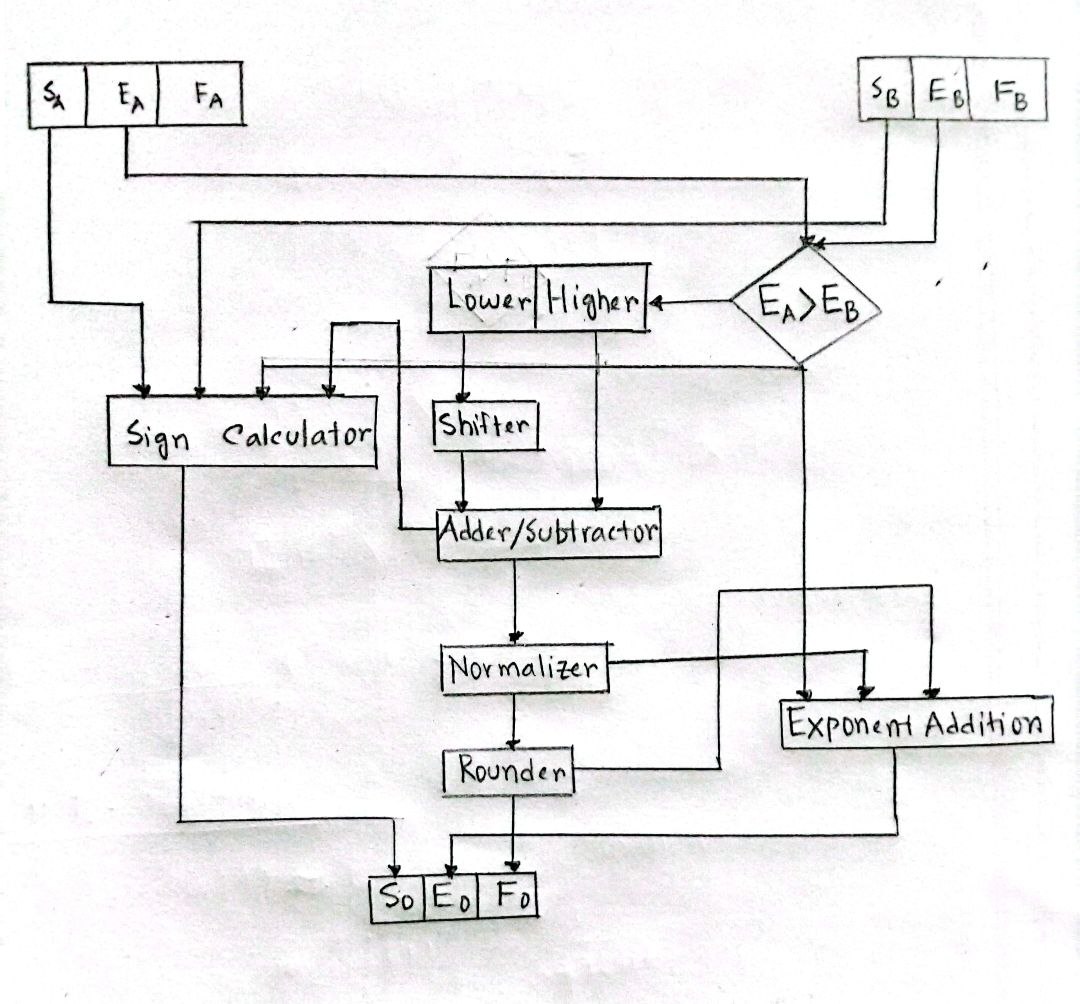 S_A E_A F_A
S_B E_B F_B
Lower Higher
E_A>E_B
Sign Calculator
Shifter
Adder/Subtractor
Normalizer
Exponent Addition
Rounder
S_0 E_0 F_0